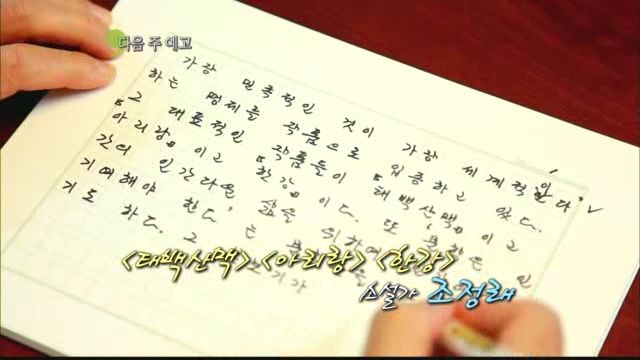 다음 주 예고
가장 민족적인 것이 가장 세계적이다
하는 명제를 작품으로 입증하고 있다.
그 대표적인 작품들이 『태백산맥』이고
『아리랑』이고 『한강』이다. 또 문학은 인
간의 인간다운 삶을 위하여
기여해야 한다, 는
기도 하다. 그
<태백산맥> <아리랑> <한강>
소설가 조정래